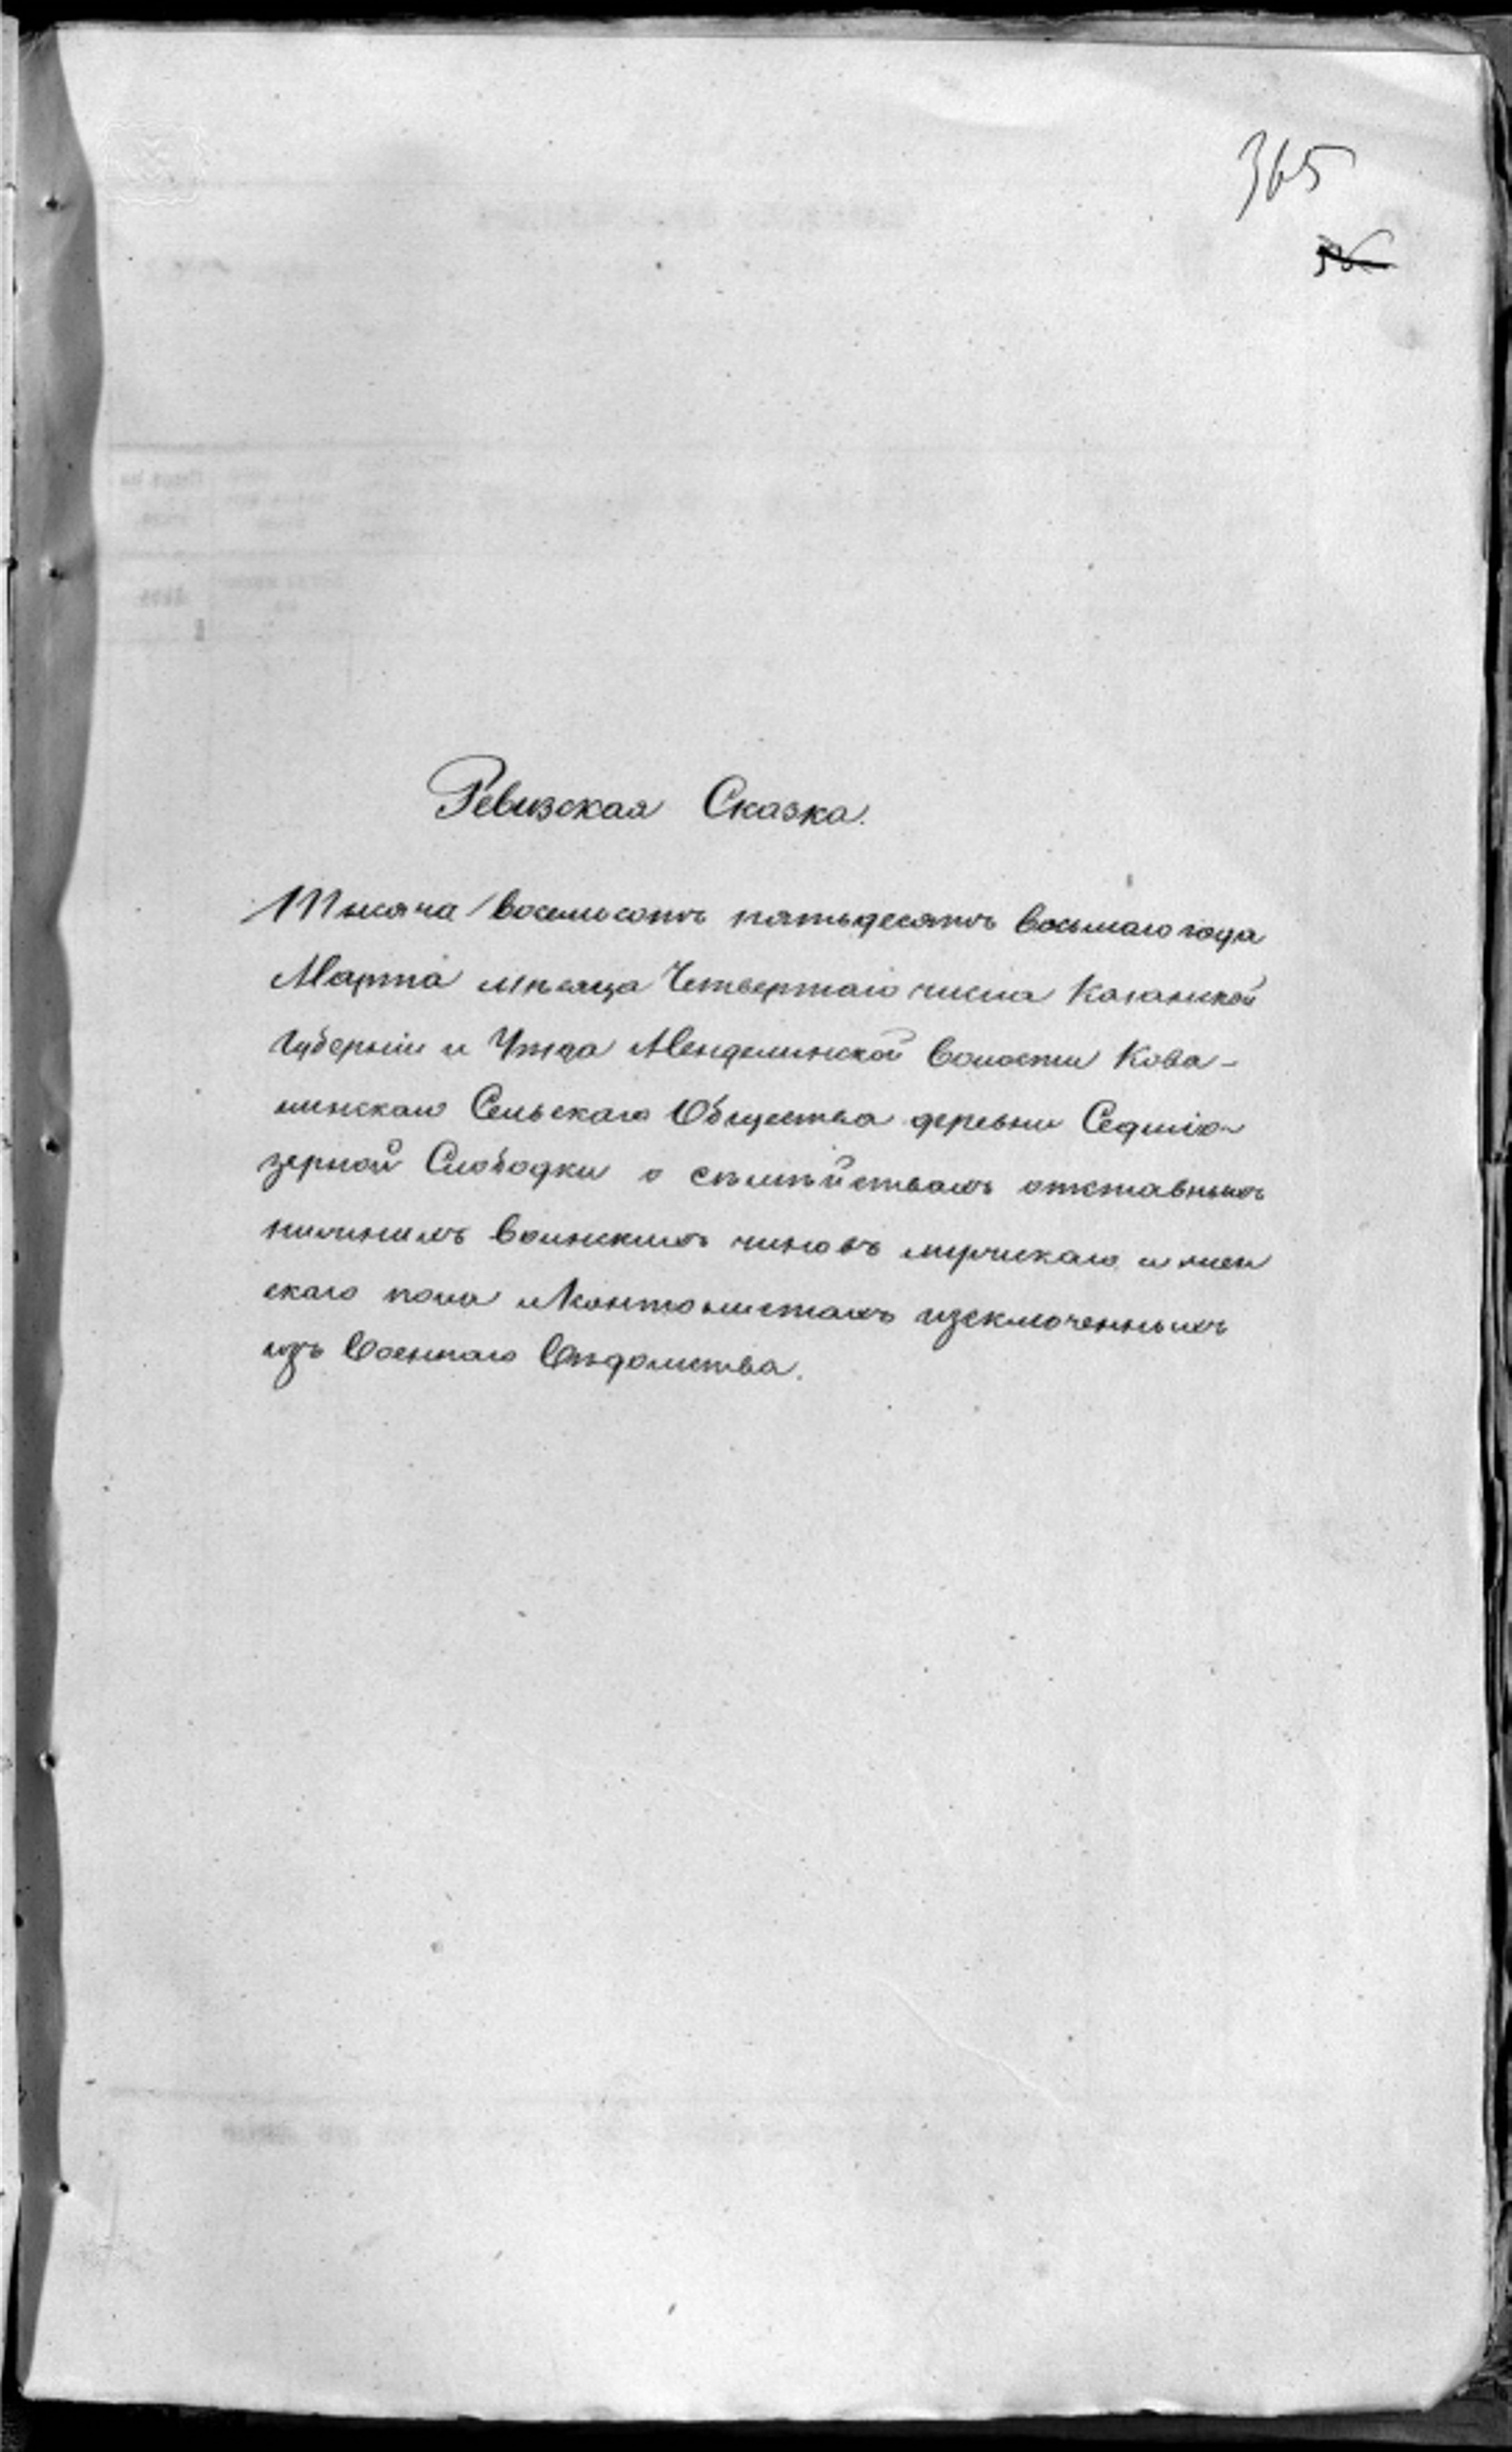 365
Ревизская Сказка.
Тысяча восемьсотъ пятьдесятъ восьмаго года
Марта мѣсяца Четвертаго числа Казанской
Губерніи и Уѣзда Менделинской волости Кова-
линскаго Сельскаго Общества деревни Седміо-
зерной Слободки о сѣмѣйствахъ отставныхъ
нижнихъ воинскихъ чиновъ мужскаго и жен
скаго пола и Кантонистахъ изключенныхъ
изъ Военнаго Вѣдомства.